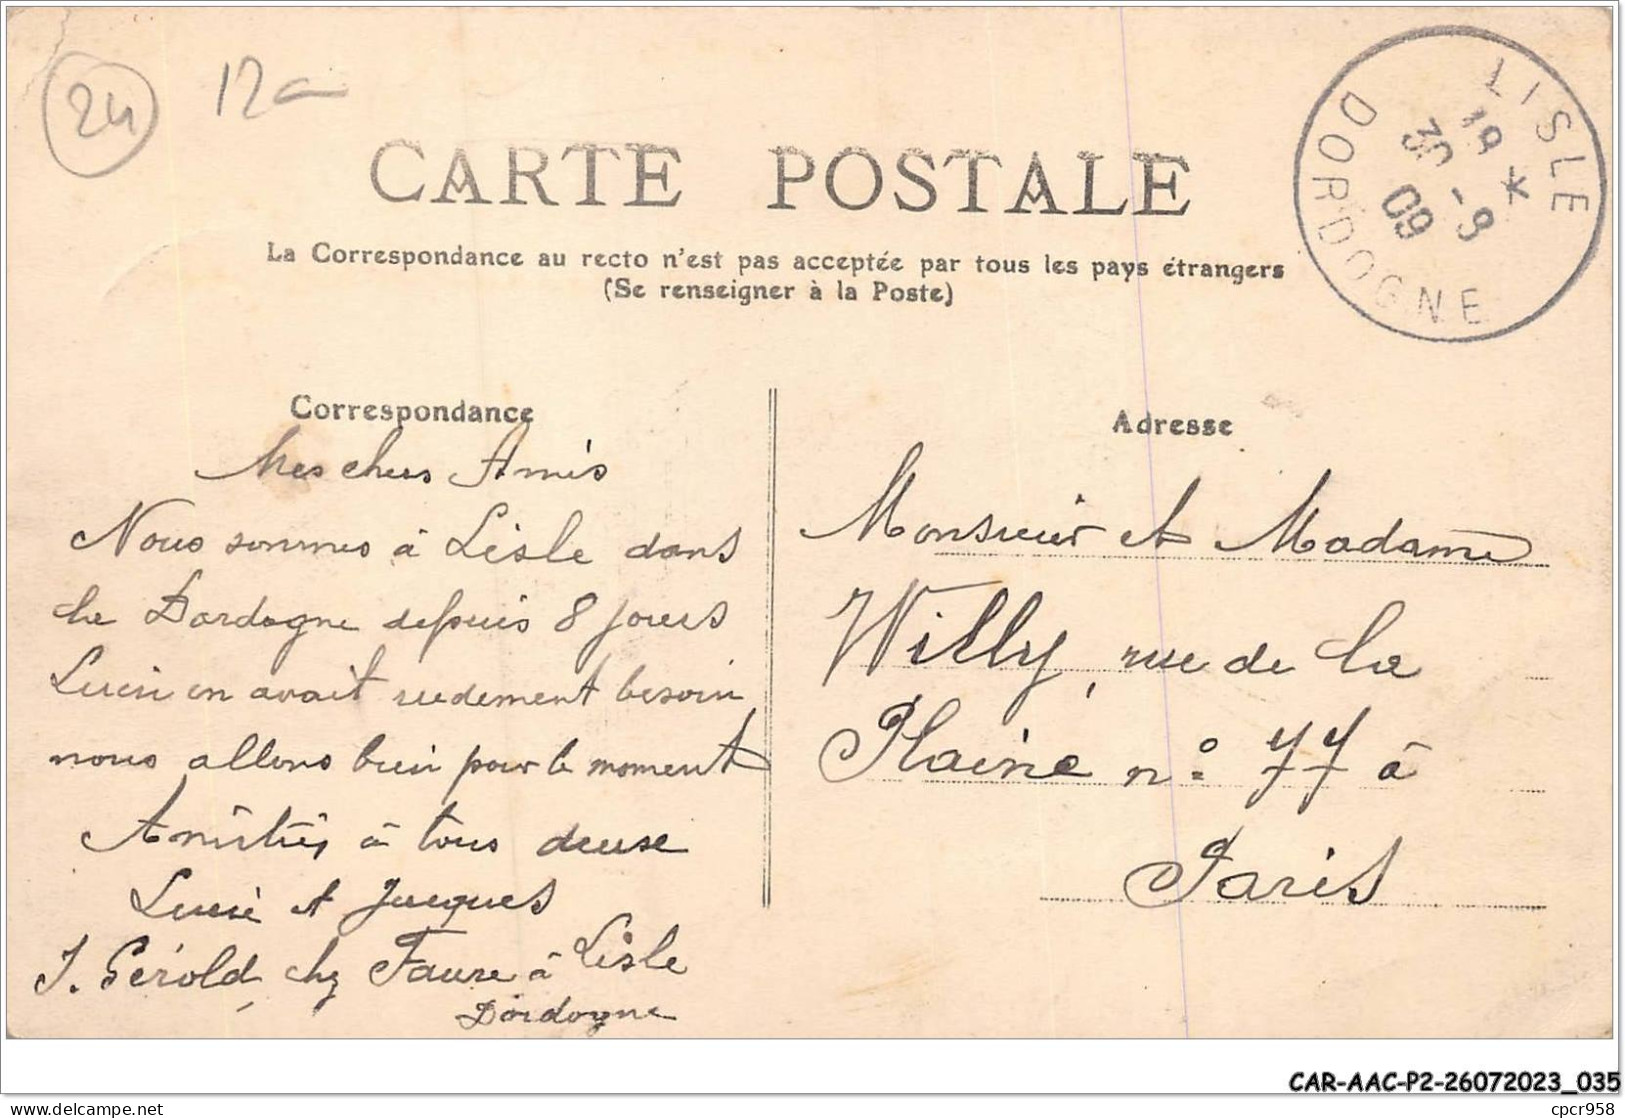 24
12a
CARTE POSTALE
La Correspondance au recto n'est pas acceptée par tous les pays étrangers
(Se renseigner à la Poste)
LISLE
18 *
30 -9
09
DORDOGNE
Correspondance
Mes chers Amis
Nous sommes à Lisle dans
la Dordogne depuis 8 jours
Lucie en avait rudement besoin
nous allons bien pour le moment
Amitiés à tous deuse
Lucie et Jacques
J. Gérold, chez Faure à Lisle
Dordogne
Adresse
Monsieur et Madame
Willy, rue de la
Plaine n° 77 à
Paris
CAR-AAC-P2-26072023_035
delcampe.net
cpcr958